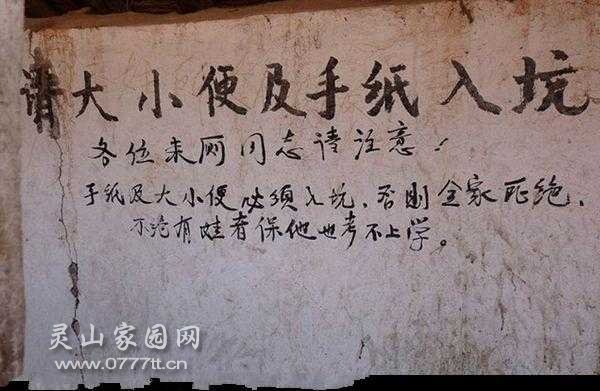 请大小便及手纸入坑
各位来网同志请注意：
手纸及大小便必须入坑，否则全家死绝，
不绝有娃者保他也考不上学。
灵山家园网
www.0777tt.cn